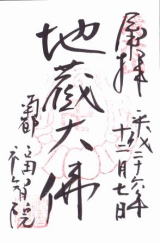 奉拝
平成二十六年
十二月七日
地蔵大佛
南都
福智院